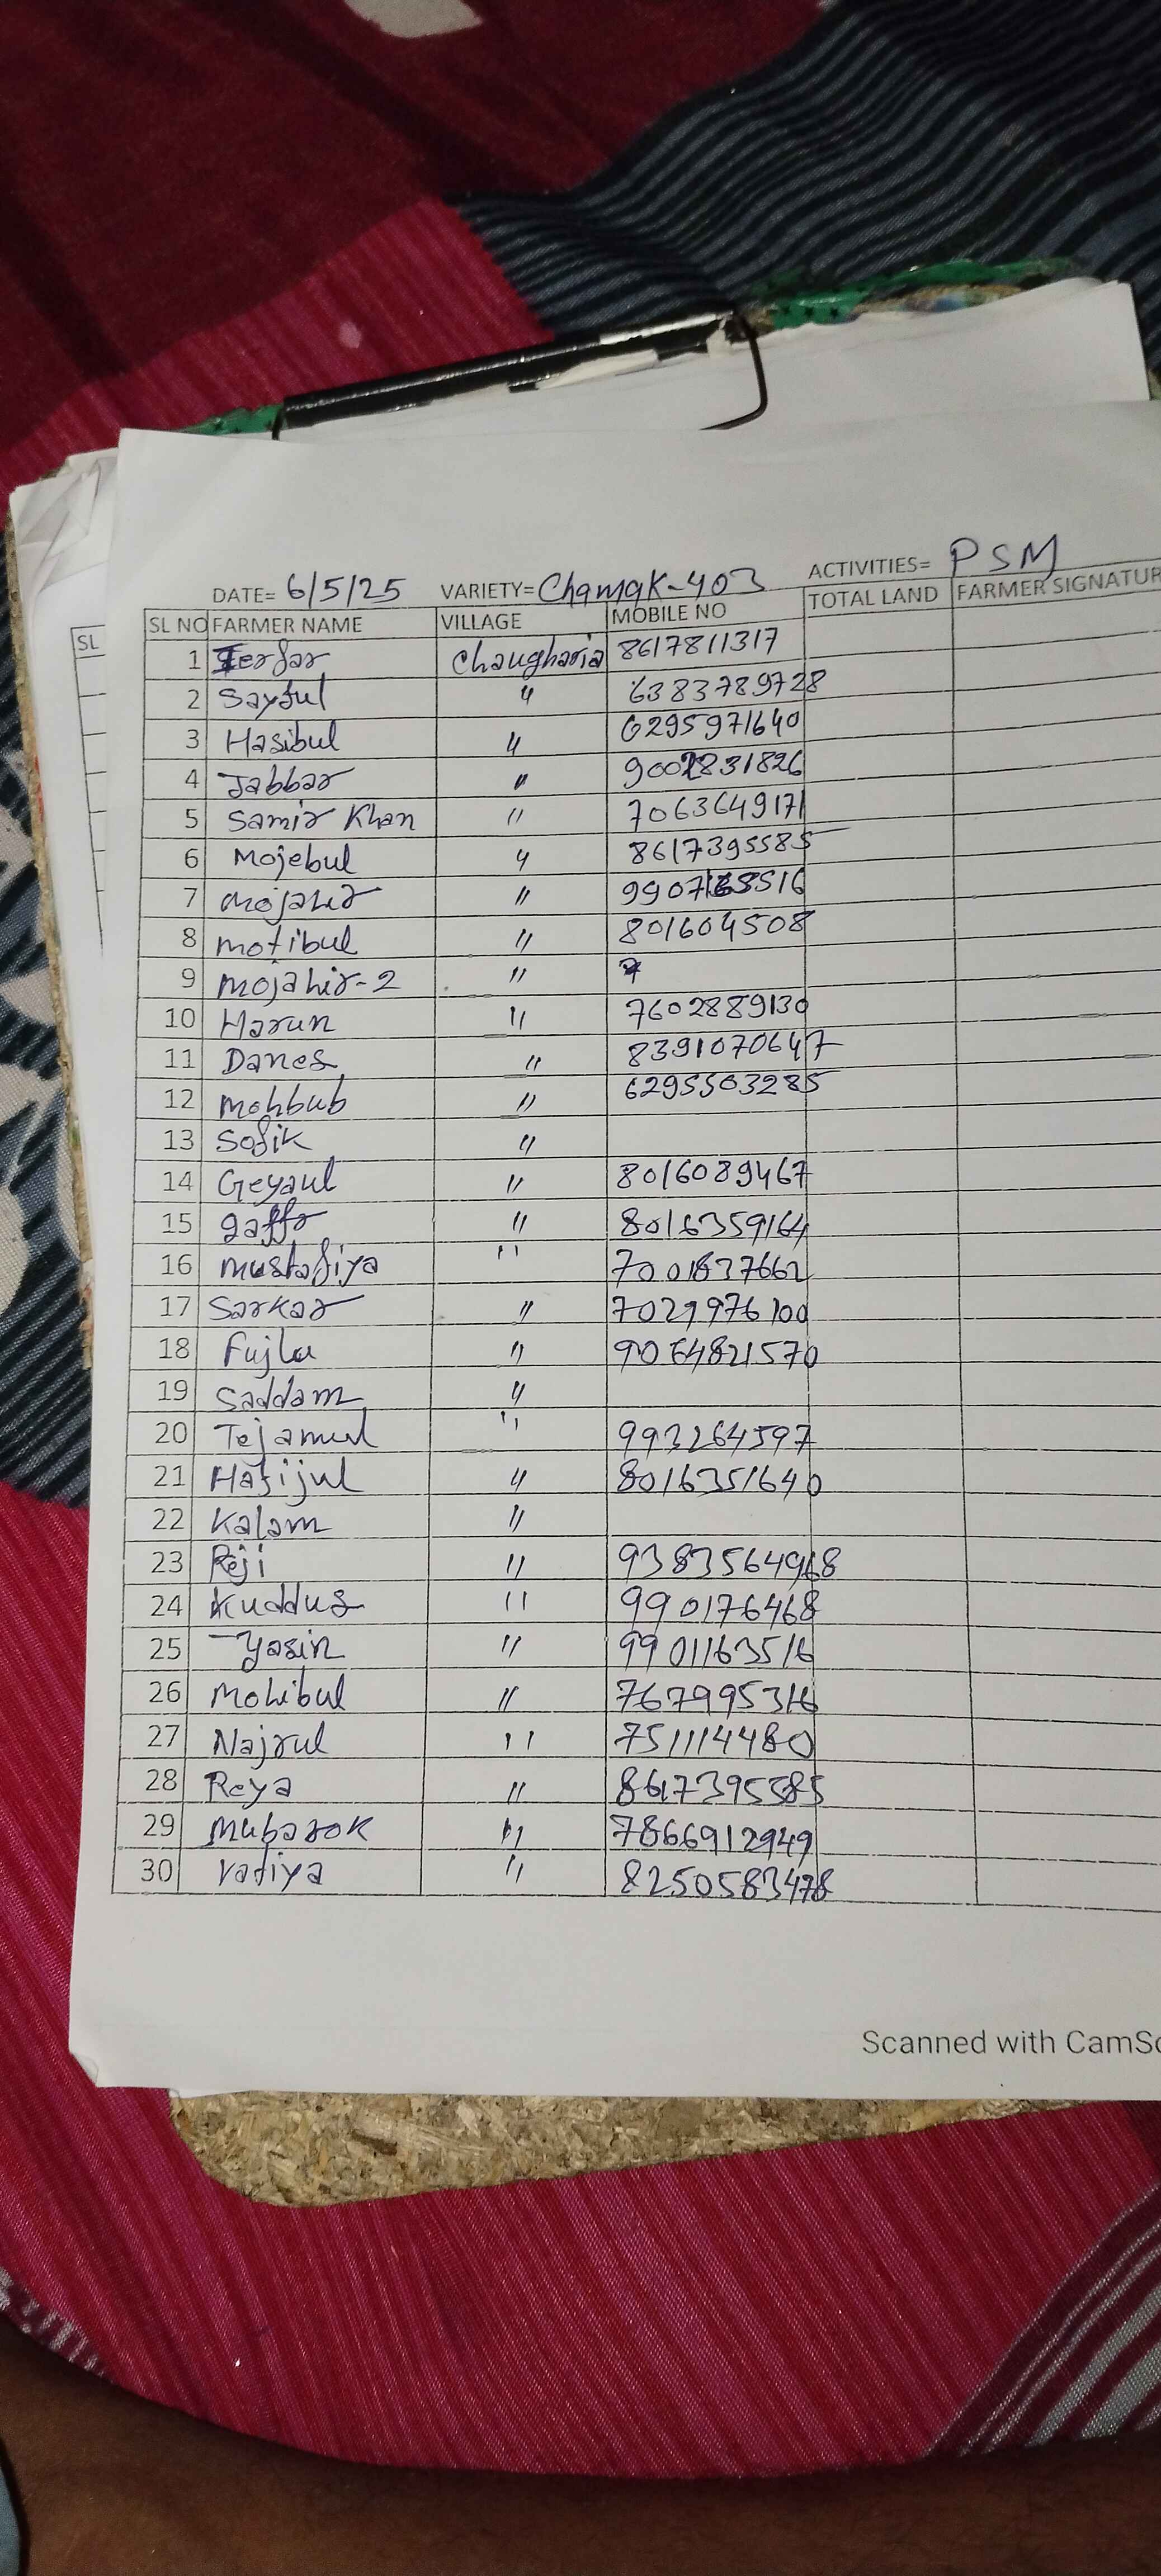 ACTIVITIES= PSM
DATE= 6/5/25 VARIETY= Chamak-403
SL NO FARMER NAME VILLAGE MOBILE NO TOTAL LAND FARMER SIGNATUR
SL
1 Ierfar Chaugharia 8617811317
2 Sayful " 6383789728
3 Hasibul " 6295971640
4 Jabbar " 9002831826
5 Samir Khan " 7063649171
6 Mojebul " 8617395585
7 Mojahir " 9907163516
8 Motibul " 801604508
9 Mojahir-2 "
10 Harun " 7602889130
11 Danes " 8391070647
12 Mohbub " 6295503285
13 Sofik "
14 Geyaul " 8016089467
15 gaffr " 8016359164
16 Mustafiya " 7001837662
17 Sarkar " 7029976100
18 Fujlu " 9064821570
19 Saddam "
20 Tejamul " 993264597
21 Hafijul " 8016351640
22 Kalam "
23 Reji " 9383564968
24 Kuddus " 990176468
25 Yasin " 9901163516
26 Mohibul " 767995316
27 Najrul " 751114480
28 Reya " 8617395585
29 Mubarok " 7866912949
30 " 8250583478
Scanned with CamSc